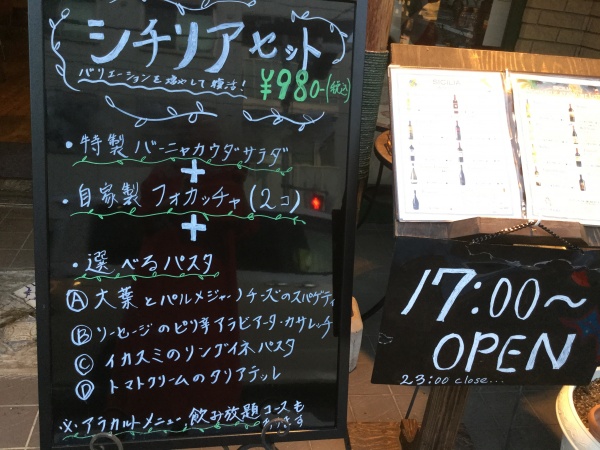 シチリアセット
バリエーションを増やして復活!
¥980-(税込)
・特製 バーニャカウダサラダ
+
・自家製 フォカッチャ(2コ)
+
・選べるパスタ
Ⓐ 大葉とパルメジャーノチーズのスパゲティ
Ⓑ ソーセージのピリ辛アラビアータ・カサレッチ
Ⓒ イカスミのリングイネパスタ
Ⓓ トマトクリームのタリアテッレ
※アラカルトメニュー 飲み放題コースも
あります
SICILIA
17:00~
OPEN
23:00 close...